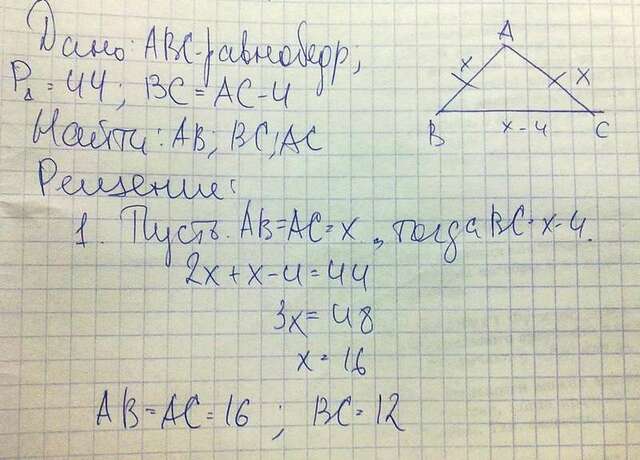 Дано: ABC-равнобедр,
P△ = 44; BC = AC-4
Найти: AB; BC; AC
Решение:
1. Пусть. AB=AC=x, тогда BC=x-4.
2x+x-4=44
3x=48
x=16
AB=AC=16; BC=12
A
x
x
B
x-4
C